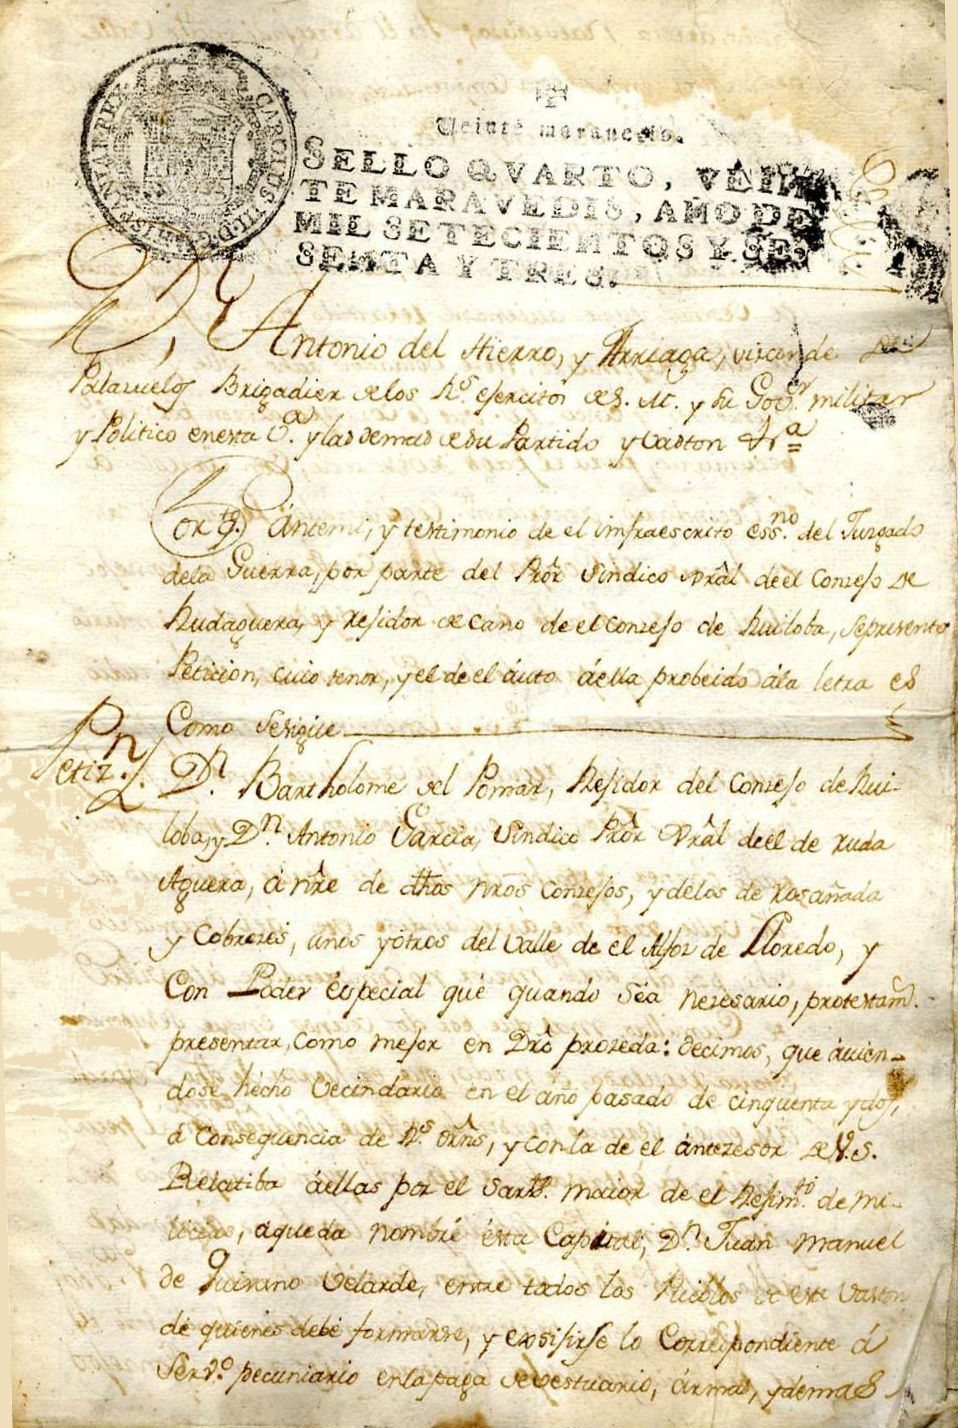 CAROLUS III. D. G. HISPANIAR. REX
Veinte maravedis.
SELLO QVARTO, VEIN
TE MARAVEDIS, AÑO DE
MIL SETECIENTOS Y SE
SENTA Y TRES.
Dn. Antonio del Hierro, y Arriaga, vizconde de
Palazuelos Brigadier de los Rs. exercitos de S. M. y su Govor. militar
y Politico en esta Va. y las demas de su Partido y Baston Ha =
Por qto. ante mi, y testimonio de el infraescrito essno. del Juzgado
dela Guerra, por parte del Prôr Sindico Grâl de el Conzejo de
Rudaguera, y rejidor decano de el conzejo de Ruiloba, se presento
Peticion, cuio tenor, y el de el áuto áella probeido ála letra es
Como se sigue
Petizn. Dn. Bartholome del Pomar, Rejidor del Conzejo de Rui-
loba, y Dn. Antonio Garcia, Sindico Prôr Grâl de el de Ruda
Aguera, á nr̃e de dĥas nrõs conzejos, y delos de
y Cobrezes, unos y ótros del Valle de el Alfoz de Lloredo, y
Con Poder éspecial qué quando séa nezesario, protestamos.
presentar, Como mejor en Drô prozeda: decimos, que ávien-
dose hecho Vecindario en el áño pasado de cinquenta y dos,
á Consequencia de Rs. orns, y con la de el ántezesor de V.S.
Relatiba áellas por el Sargto. maior de el Rejimto. de mi-
licias, aqueda nombre ésta Capital, Dn. Juan Manuel
de Quirano Velarde, entre todos los Pueblos de este Baston
de quienes debé formarse, y exsijirse lo Correspondiente á
Servo. pecuniario en la paga de vestuario, ármas, y demas